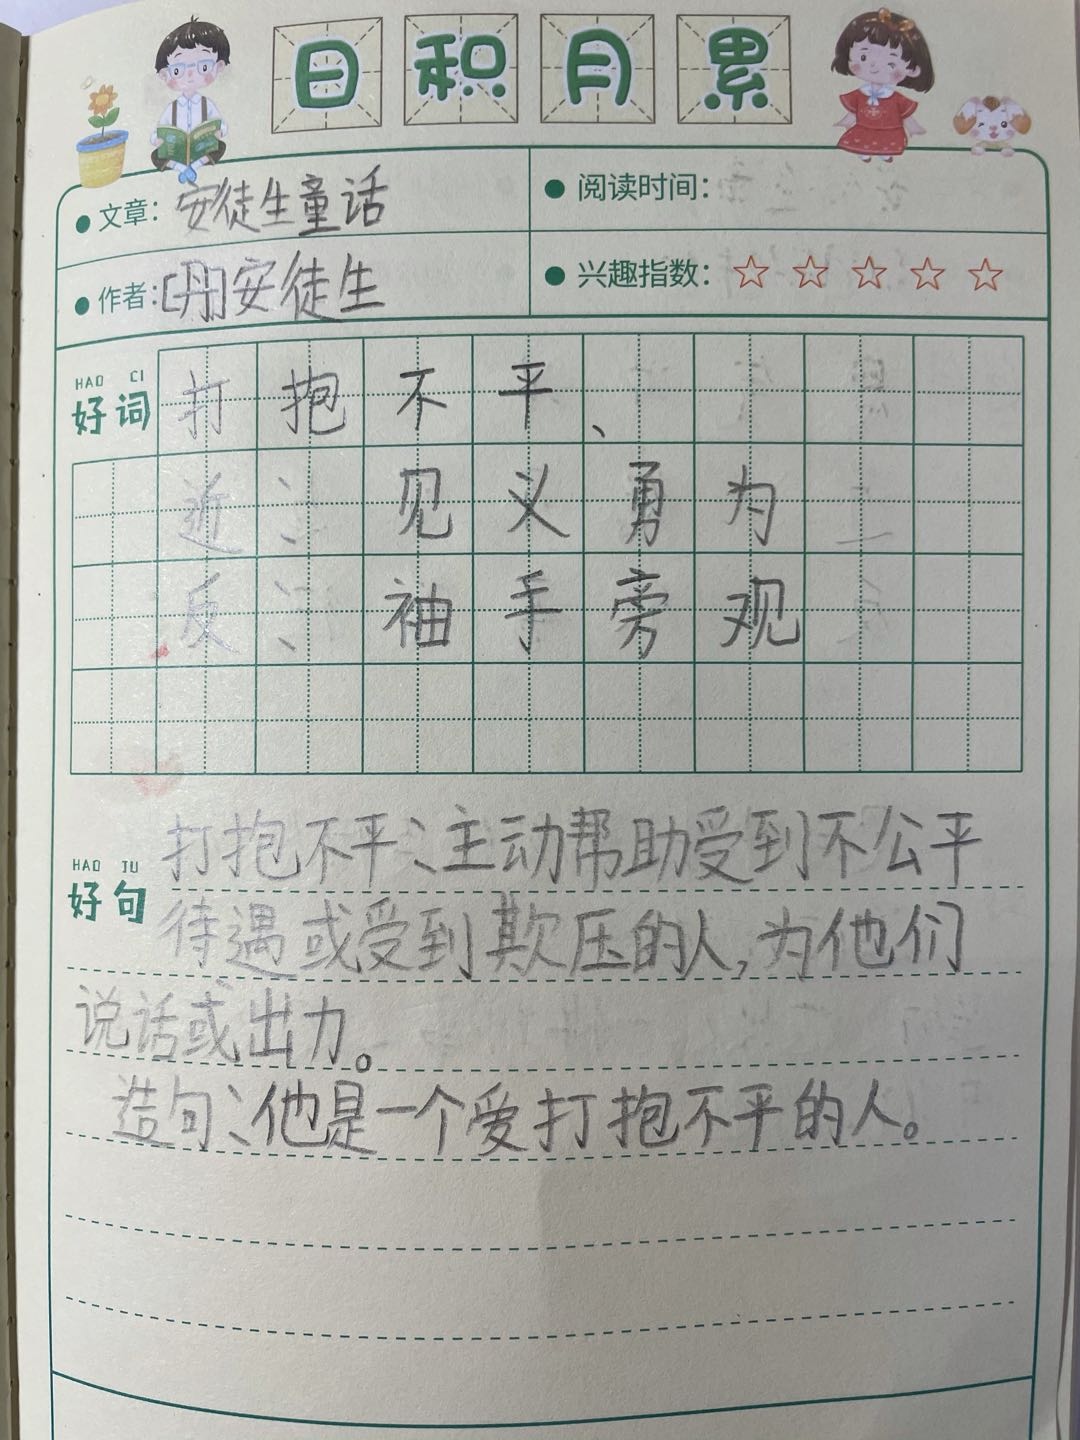 日积月累
文章：安徒生童话
阅读时间：
作者：[丹]安徒生
兴趣指数：☆☆☆☆☆
HAO CI
好词
打抱不平、
近：见义勇为
反：袖手旁观
HAO JU
好句
打抱不平：主动帮助受到不公平
待遇或受到欺压的人，为他们
说话或出力。
造句：他是一个爱打抱不平的人。